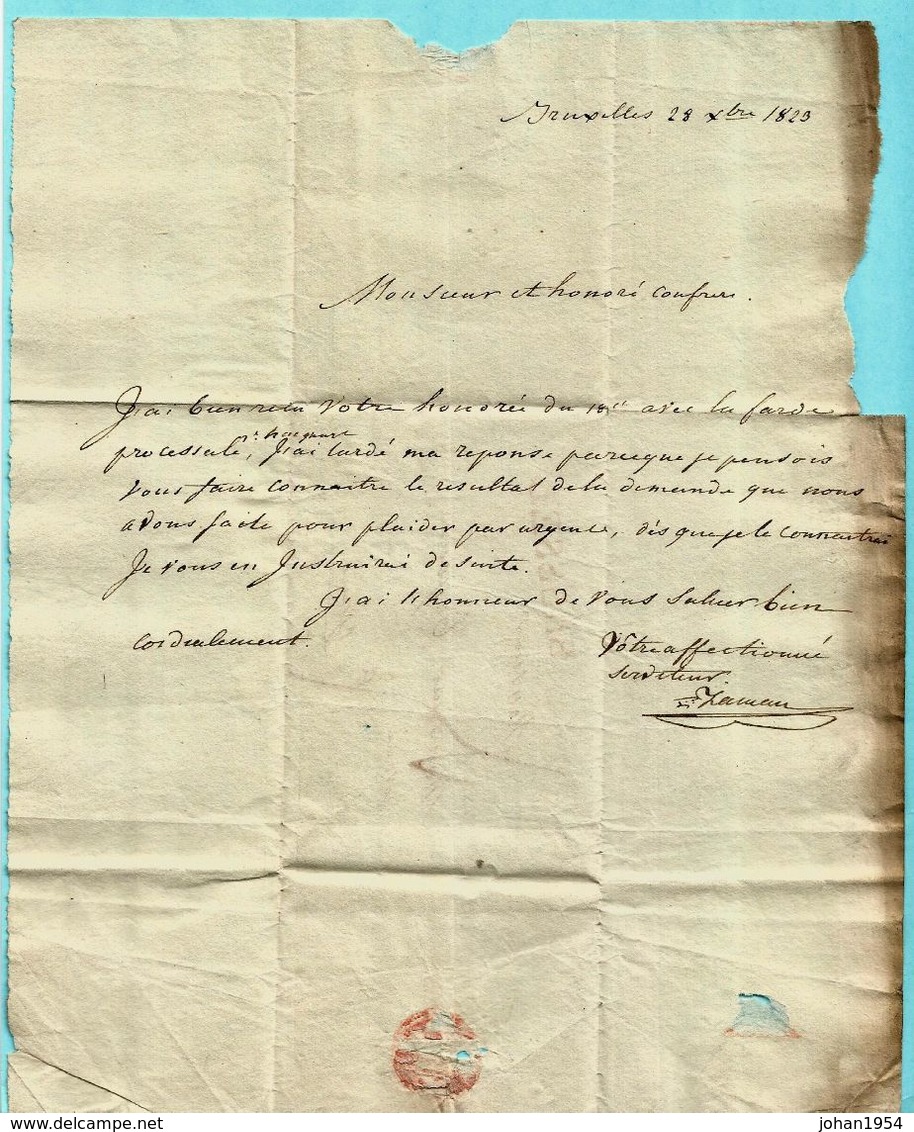 Bruxelles 28 xbre 1823
Monsieur et honoré confrere.
J'ai bien recu votre honorée du 18 ct avec la farde
processale, J'ai tardé ma reponse parceque je pensois
vous faire connaitre le resultat de la demande que nous
avons faite pour plaider par urgence, dés que je le connaitrai
Je vous en Instruirai de suite.
J'ai l'honneur de vous saluer bien
cordialement.
Vôtre affectionné
serviteur.
Zaman
www.delcampe.net
johan1954